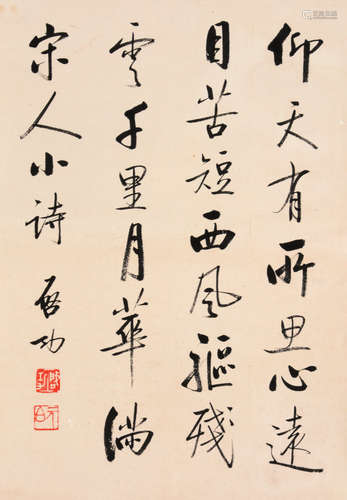 仰天有所思心遠
目苦短西风驅残
雲千里月華滿
宋人小詩 啓功